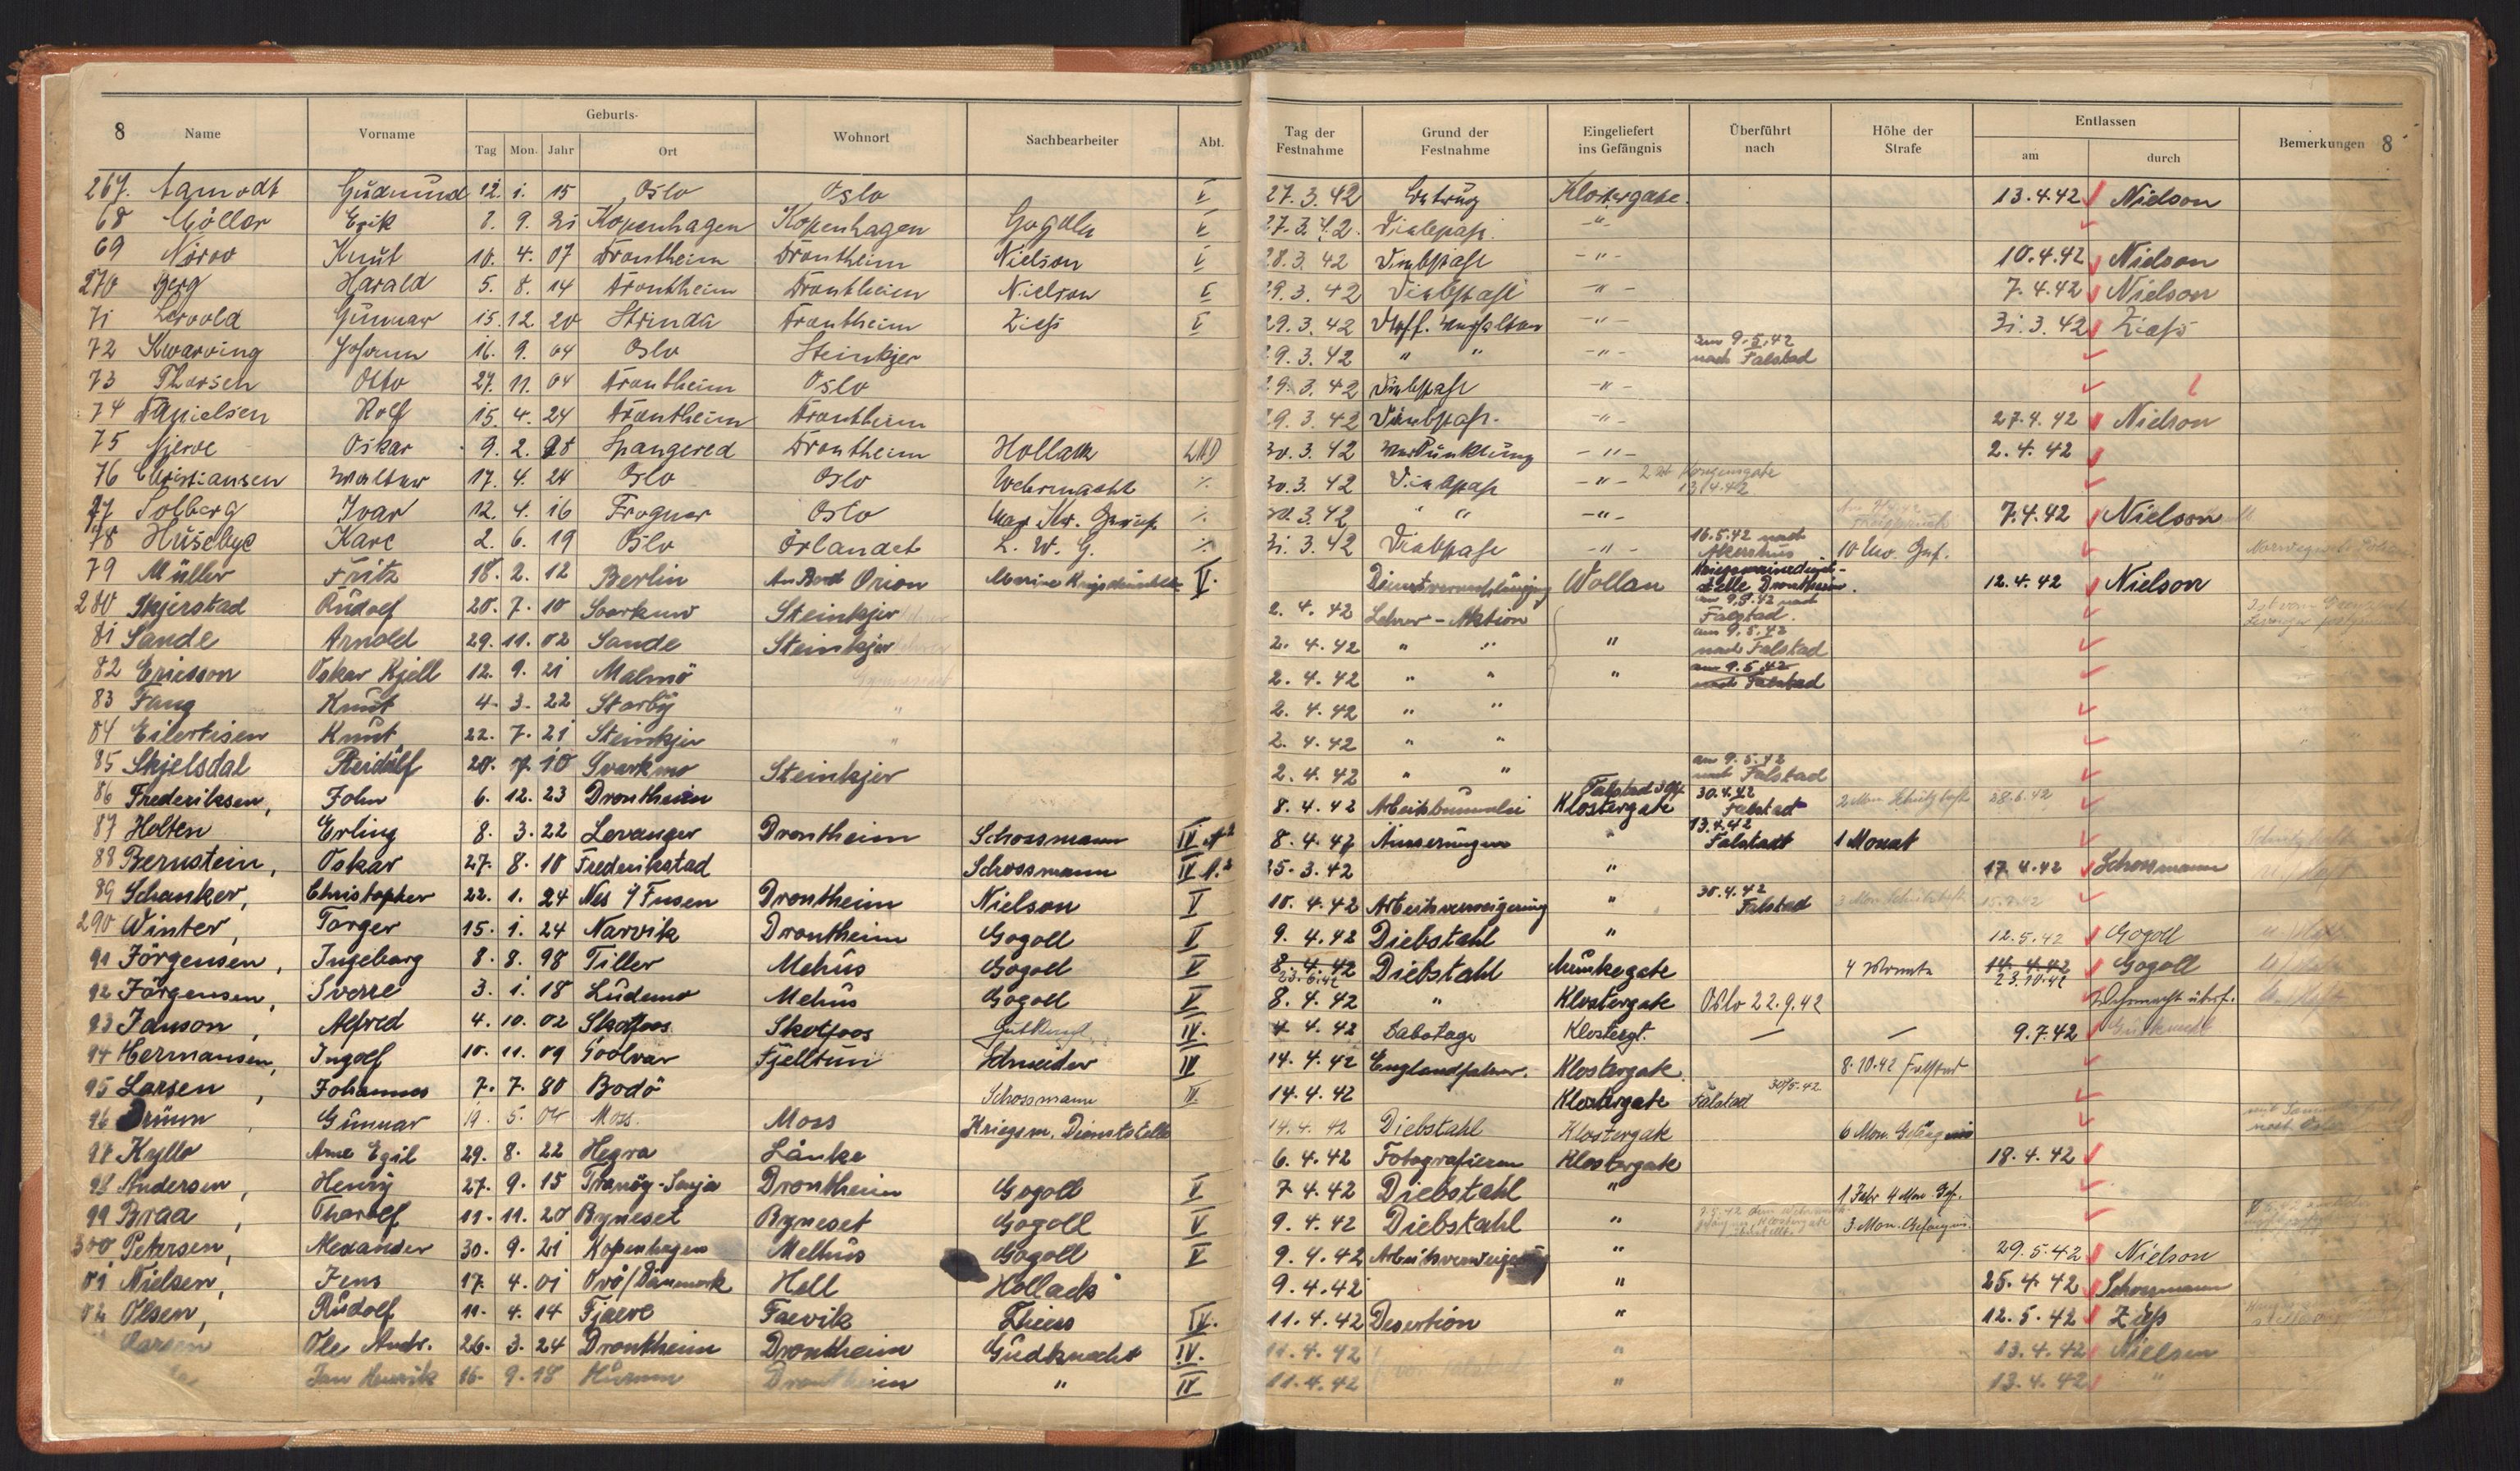 8 Name Vorname Geburts- Tag Mon. Jahr Ort Wohnort Sachbearbeiter Abt. Tag der Festnahme Grund der Festnahme Eingeliefert ins Gefängnis Überführt nach Höhe der Strafe Entlassen am durch Bemerkungen 8
267. Aamodt Gudmund 12. 1. 15 Oslo Oslo V 27.3.42 Betrug Klostergate. 13.4.42 Nielson
68 Möller Erik 8. 9. 21 Kopenhagen Kopenhagen Gogolla V 27.3.42. Diebstahl. -"-
69 Knut 10. 4. 07 Drontheim Drontheim Nielson V 28.3.42 Diebstahl -"- 10.4.42 Nielson
270 Berg Harald 5. 8. 14 Drontheim Drontheim Nielson V 29.3.42 Diebstahl -"- 7.4.42 Nielson
71 Lervold Gunnar 15. 12. 20 Strinda Drontheim Ziess V 29.3.42 -"- 31.3.42 Ziess
72 Kwarving Johann 16. 9. 04 Oslo Steinkjer 29.3.42 " " -"- am 9.5.42 nach Falstad
73 Thorsen Otto 27. 11. 04 Drontheim Oslo 29.3.42 Diebstahl -"-
74 Danielsen Rolf 15. 4. 24 Drontheim Drontheim 29.3.42 Diebstahl. -"- 27.4.42 Nielson
75 Njerve Oskar 9. 2. 98 Spangered Drontheim Hollack 30.3.42 Verdunklung -"- 2.4.42
76 Christiansen Walter 17. 4. 24 Oslo Oslo Wehrmacht ./. 30.3.42 Diebstahl -"- Kongensgate 13.4.42
77 Solberg Ivar 12. 4. 16 Frogner Oslo Mar. Kr. Gericht ./. 30.3.42 " " -"- 7.4.42 Nielson
78 Husebye Kare 2. 6. 19 Oslo Örlandet L. W. G. ./. 31.3.42 Diebstahl -"- 16.5.42 nach Akershus 10 Mo. Gef.
79 Müller Fritz 18. 2. 12 Berlin An Bord Orion Marine V. Dienstvernachlässigung Wollan Kriegsmarinedienststelle Drontheim. 12.4.42 Nielson
280 Skjerstad Rudolf 20. 7. 10 Svarkmo Steinkjer 2. 4. 42 Lehrer-Aktion am 9.5.42 nach Falstad.
81 Sande Arnold 29. 11. 02 Sande Steinkjer 2. 4. 42 " " " am 9.5.42 nach Falstad
82 Ericsson Oskar Kjell 12. 9. 21 Malmö 2. 4. 42 " " " am 9.5.42 nach Falstad
83 Fang Knut 4. 3. 22 Starby " 2. 4. 42 " "
84 Eilertsen Knut 22. 7. 21 Steinkjer " 2. 4. 42 " "
85 Skjelsdal Reidulf 20. 7. 10 Svarkmo Steinkjer 2. 4. 42 " " am 9.5.42 nach Falstad
86 Frederiksen, John 6. 12. 23 Drontheim 8. 4. 42 Arbeitsbummelei Klostergate 30.4.42 Falstad 2 Mon. Schutzhaft 28.6.42
87 Holten Erling 8. 3. 22 Levanger Drontheim Schossmann IV A2 8. 4. 42 Äusserungen " 13.4.42 Falstadt 1 Monat
88 Bernstein, Oskar 27. 8. 10 Frederikstad Schossmann IV A.2 25.3.42 " 17.4.42 Schossmann
89 Schanker, Christopher 22. 1. 24 Nes i/ Fusen Drontheim Nielson V 10. 4. 42 Arbeitsverweigerung " 30.4.42 Falstad 3 Mon. Schutzhaft
290 Winter, Torger 15. 1. 24 Narvik Drontheim Gogoll V 9. 4. 42 Diebstahl " 12.5.42 Gogoll
91 Jörgensen, Ingeborg 8. 8. 98 Tiller Mehus Gogoll V 8. 4. 42 23.6.42 Diebstahl Munkegate 4 Monate 14.4.42 23.10.42 Gogoll
92 Jörgensen, Sverre 3. 1. 18 Ludemo Mehus Gogoll V 8. 4. 42 " Klostergate Oslo 22.9.42 Wehrmacht überf.
93 Janson, Alfred 4. 10. 02 Skotfoos Skotfoos Gutknecht IV. 4. 4. 42 Sabotage Klostergt. — — 9.7.42 Gutknecht
94 Hermansen, Ingolf 10. 11. 09 Soolvar Fjelltun Schneider IV 14. 4. 42 Englandfahrer. Klostergate. 8.10.42 Falstad
95 Larsen, Johannes 7. 7. 80 Bodö Schossmann IV. 14. 4. 42 Klostergate Falstad 30/5.42
96 Brunn, Gunnar 19. 5. 04 Moss. Moss Kriegsm. Dienststelle 14. 4. 42 Diebstahl Klostergate 6 Mon. Gefängnis
97 Kyllo Arne Egil 29. 8. 22 Hegra Lånke 6. 4. 42 Fotografieren Klostergate 18.4.42
98 Andersen, Henry 27. 9. 15 Tranöy-Senja Drontheim Gogoll V 7. 4. 42 Diebstahl " 1 Jahr 4 Mon. Gef.
99 Braa, Tharolf 11. 11. 20 Byneset Byneset Gogoll V 9. 4. 42 Diebstahl " 3 Mon. Gefängnis.
300 Petersen, Alexander 30. 9. 21 Kopenhagen Melhus Gogoll V 9. 4. 42 Arbeitsverweigerung " 29.5.42 Nielson
01 Nielsen, Jens 17. 4. 01 Orö/Dänmark Hell Hollack 9.4.42 " 25.4.42 Schossmann
02 Olsen, Rudolf 11. 4. 14 Fjaere Faevik Thiess IV. 11.4.42 Desertion " 12.5.42 Ziess
Larsen Ole Andr. 26. 3. 24 Drontheim Drontheim Gudknecht IV. 11.4.42 " 13.4.42 Nielsen
Jan Henrik 16. 9. 18 Hurum Drontheim " IV 11.4.42 " 13.4.42 "